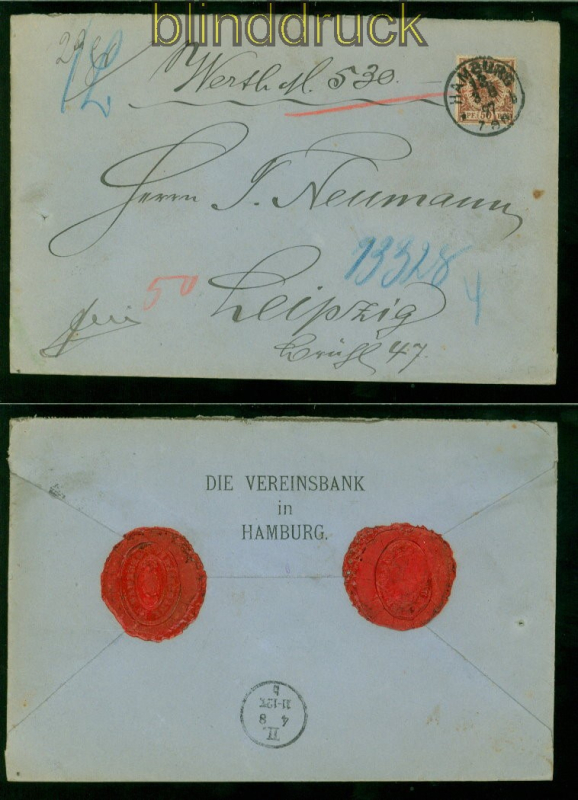 blinddruck
Werth M. 530.
HAMBURG
Herrn J. Neumann
13328
50
4
Leipzig
Brühl 47.
DIE VEREINSBANK
in
HAMBURG.
II.
4 8
11-12V
b